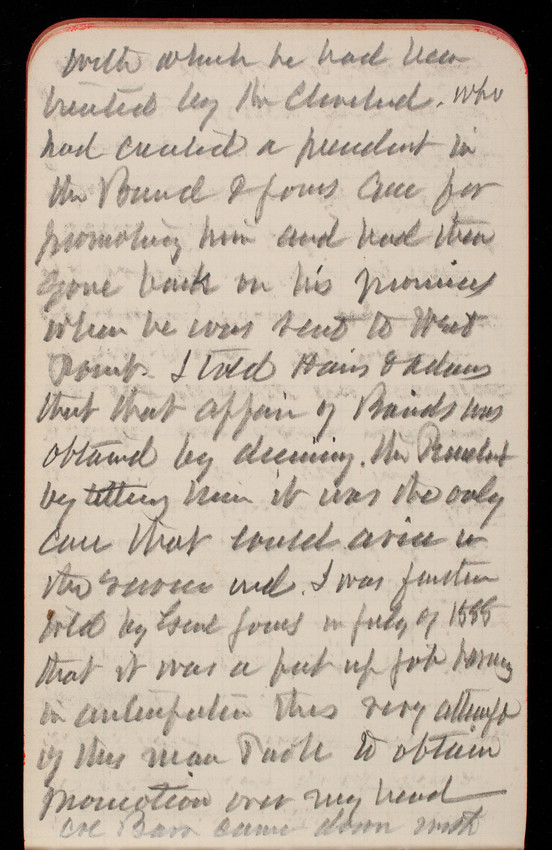 with which he had been
treated by Mr Cleveland. who
had created a precedent in
the Baird & Jones case for
promoting him and had then
gone back on his promises
when he was sent to West
Point. I told Hains & Adams
that that affair of Bairds was
obtained by deceiving the President
by telling him it was the only
case that could arise in
the service and I was further
told by Genl Jones in July of 1888
that it was a put up job having
in anticipation this very attempt
of this man to obtain
promotion over my head
Col Barr came down with